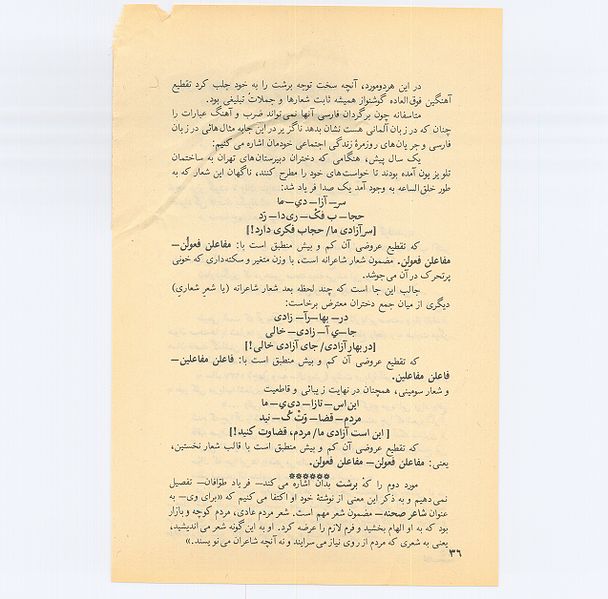 در این هردومورد، آنچه سخت توجه برشت را به خود جلب کرد تقطیع
آهنگین فوق‌العاده گوشنواز همیشه ثابت شعارها و جملات تبلیغی بود.
متأسفانه چون برگردان فارسی آنها نمی‌تواند ضرب و آهنگ عبارات را
چنان که در زبان آلمانی هست نشان بدهد ناگزیر در این جا به مثال‌هائی در زبان
فارسی و جریان‌های روزمرهٔ زندگی اجتماعی خودمان اشاره می‌کنیم:
یک سال پیش، هنگامی که دختران دبیرستان‌های تهران به ساختمان
تلویزیون آمده بودند تا خواست‌های خود را مطرح کنند، ناگهان این شعار که به
طور خلق‌الساعه به وجود آمد یک صدا فریاد شد:
سرـ آزا‌ـ دی‌ـ ما
حجاـ ب فکْ‌ـ ری‌داـ رد
[سر آزادی ما/ حجاب فکری دارد!]
که تقطیع عروضی آن کم و بیش منطبق است با: مفاعلن فعولُن‌ـ
مفاعلن فعولن. مضمون شعار شاعرانه است، با وزن متغیر و سکته‌داری که خونی
پرتحرک در آن می‌جوشد.
جالب این جا است که چند لحظه بعد شعار شاعرانه (یا شعرِ شعاریِ)
دیگری از میان جمع دختران معترض برخاست:
درـ بهاـ رآ‌ـ زادی
جا‌ـ یِ آ‌ـ زادی‌ـ خالی
[در بهار آزادی/ جای آزادی خالی!]
که تقطیع عروضی آن کم و بیش منطبق است با: فاعلن مفاعلین‌ـ
فاعلن مفاعلین.
و شعار سومینی، همچنان در نهایت زیبائی و قاطعیت
این اس‌ـ تازاـ دی‌یِ‌ـ ما
مردم‌ـ قضا‌ـ وَتْ کُ‌ـ نید
[این است آزادی ما/ مردم، قضاوت کنید!]
که تقطیع عروضی آن کم و بیش منطبق است با قالب شعار نخستین،
یعنی: مفاعلن فعولن‌ـ مفاعلن فعولن.
******
مورد دوم را که برشت بدان اشاره می‌کند‌ـ فریاد طوّافان‌ـ تفصیل
نمی‌دهیم و به ذکر این معنی از نوشتهٔ خود او اکتفا می‌کنیم که «برای وی‌ـ به
عنوان شاعر صحنه‌ـ مضمون شعر مهم است. شعر مردم عادی، مردم کوچه و بازار
بود که به او الهام بخشید و فرم لازم را عرضه کرد. او به این گونه شعر می‌اندیشید،
یعنی به شعری که مردم از روی نیاز می‌سرایند و نه آنچه شاعران می‌نویسند.»
۳۶